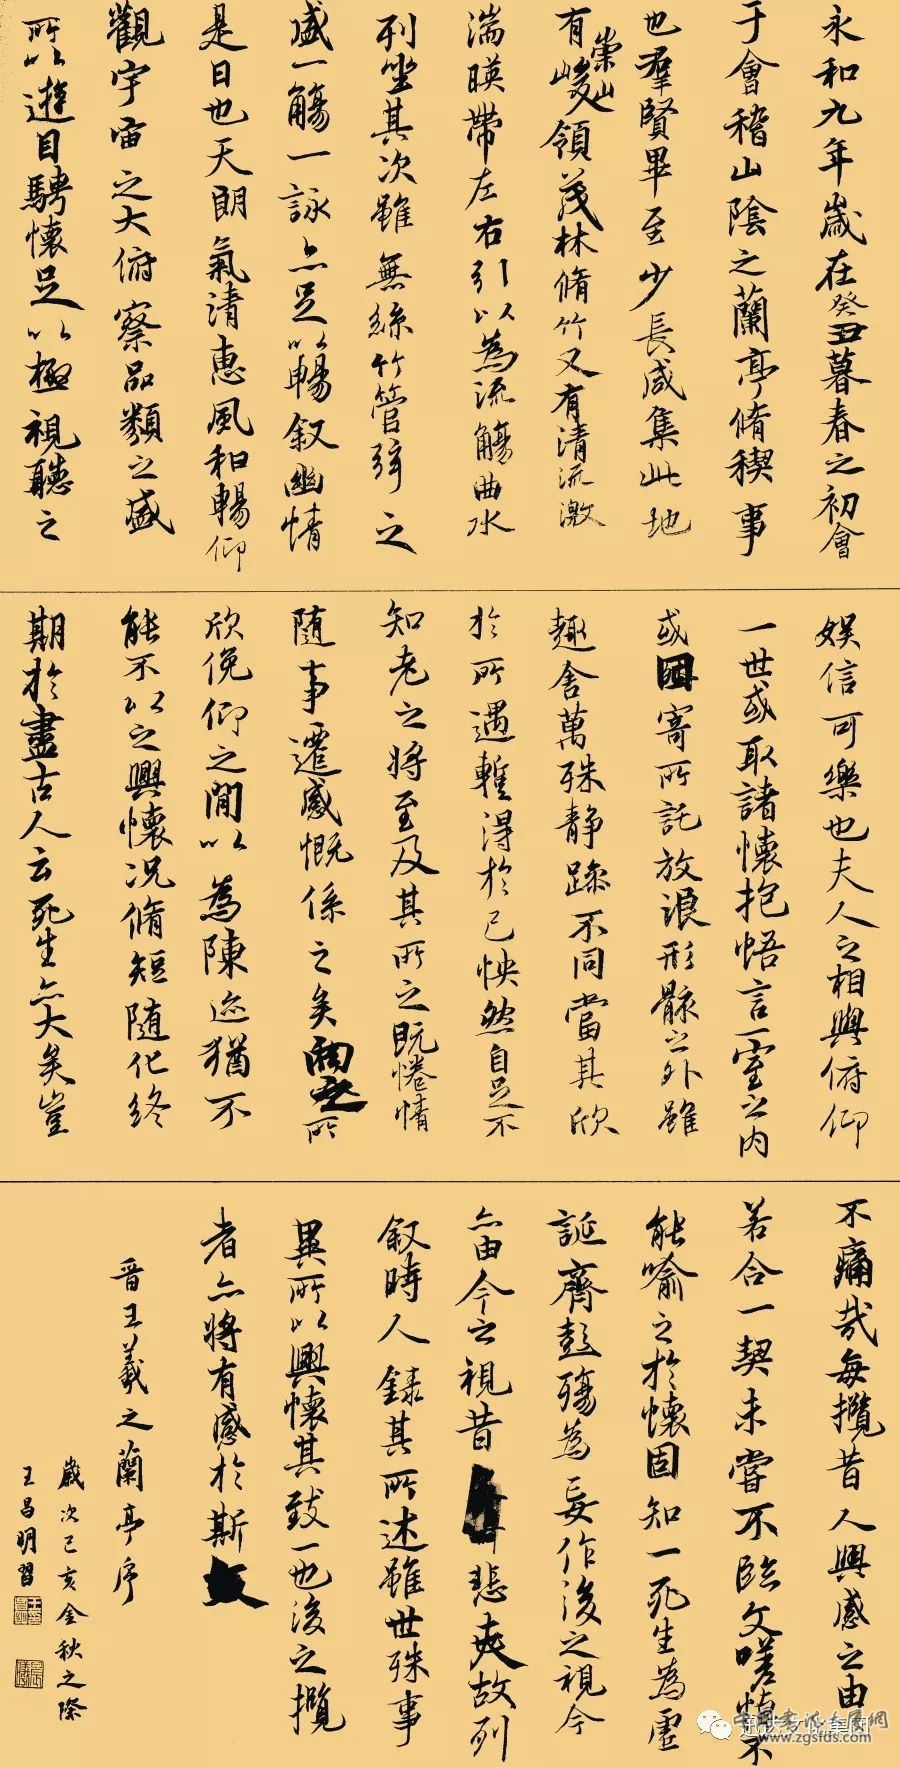 永和九年歲在癸丑暮春之初會
于會稽山陰之蘭亭脩稧事
也羣賢畢至少長咸集此地
有崇山峻領茂林脩竹又有清流激
湍暎帶左右引以為流觴曲水
列坐其次雖無絲竹管弦之
盛一觴一詠亦足以暢敘幽情
是日也天朗氣清惠風和暢仰
觀宇宙之大俯察品類之盛
所以遊目騁懷足以極視聽之
娛信可樂也夫人之相與俯仰
一世或取諸懷抱悟言一室之內
或因寄所託放浪形骸之外雖
趣舍萬殊静躁不同當其欣
於所遇暫得於己怏然自足不
知老之將至及其所之既惓情
随事遷感慨係之矣向之所
欣俛仰之閒以為陳迹猶不
能不以之興懷況脩短随化終
期於盡古人云死生亦大矣豈
不痛哉每攬昔人興感之由
若合一契未嘗不臨文嗟悼不
能喻之於懷固知一死生為虛
誕齊彭殤為妄作後之視今
亦由今之視昔悲夫故列
叙時人錄其所述雖世殊事
異所以興懷其致一也後之攬
者亦將有感於斯文
晉王羲之蘭亭序
歲次己亥金秋之際
王昌明習
www.zgsfds.com